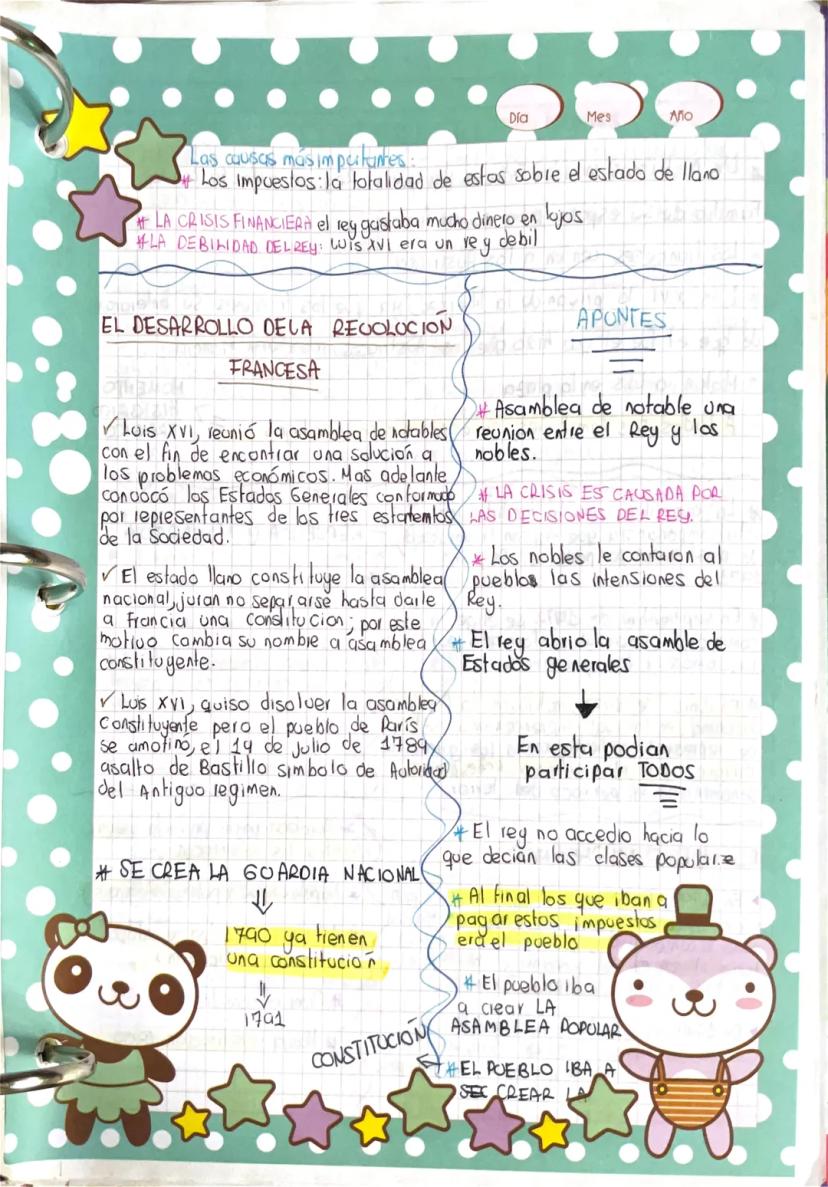 Día Mes Año
Las causas más importantes:
* Los impuestos: la totalidad de estos sobre el estado de llano
# LA CRISIS FINANCIERA el rey gastaba mucho dinero en lujos
#LA DEBILIDAD DEL REY: Luis XVI era un rey debil
EL DESARROLLO DE LA REVOLUCIÓN
FRANCESA
✓ Luis XVI, reunió la asamblea de notables
con el fin de encontrar una solución a
los problemas económicos. Mas adelante
convocó los Estados Generales conformado
por representantes de los tres estamentos
de la Sociedad.
✓ El estado llano constituye la asamblea
nacional, juran no separarse hasta darle
a Francia una constitucion; por este
motivo cambia su nombre a asamblea
constituyente.
✓ Luis XVI, quiso disolver la asamblea
Constituyente pero el pueblo de París
se amotino, el 14 de julio de 1789
asalto de Bastillo simbolo de Autoridad
del Antiguo regimen.
* SE CREA LA GUARDIA NACIONAL
1790 ya tienen
una constitución
1791
APUNTES
* Asamblea de notable una
reunion entre el Rey y los
nobles.
* LA CRISIS ES CAUSADA POR
LAS DECISIONES DEL REY.
* Los nobles le contaron al
pueblos las intensiones del
Rey.
* El rey abrio la asamble de
Estados generales
En esta podian
participar TODOS
* El rey no accedio hacia lo
que decian las clases populare
* Al final los que iban a
pagar estos impuestos
era el pueblo
* El pueblo iba
a crear LA
ASAMBLEA POPULAR
* EL PUEBLO IBA A
CREAR LA
CONSTITUCIÓN